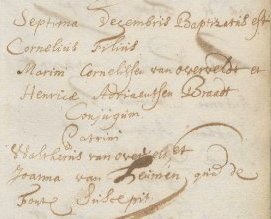 Septima Decembris Baptizatus est
Cornelius Filius
Marini Cornelissen van overveldt et
Henricæ Adriaentsen Braadt
Conjugum
Patrini
Waltherus van overvelt, et
Joanna van Leimen quæ de
fonte Suscepit